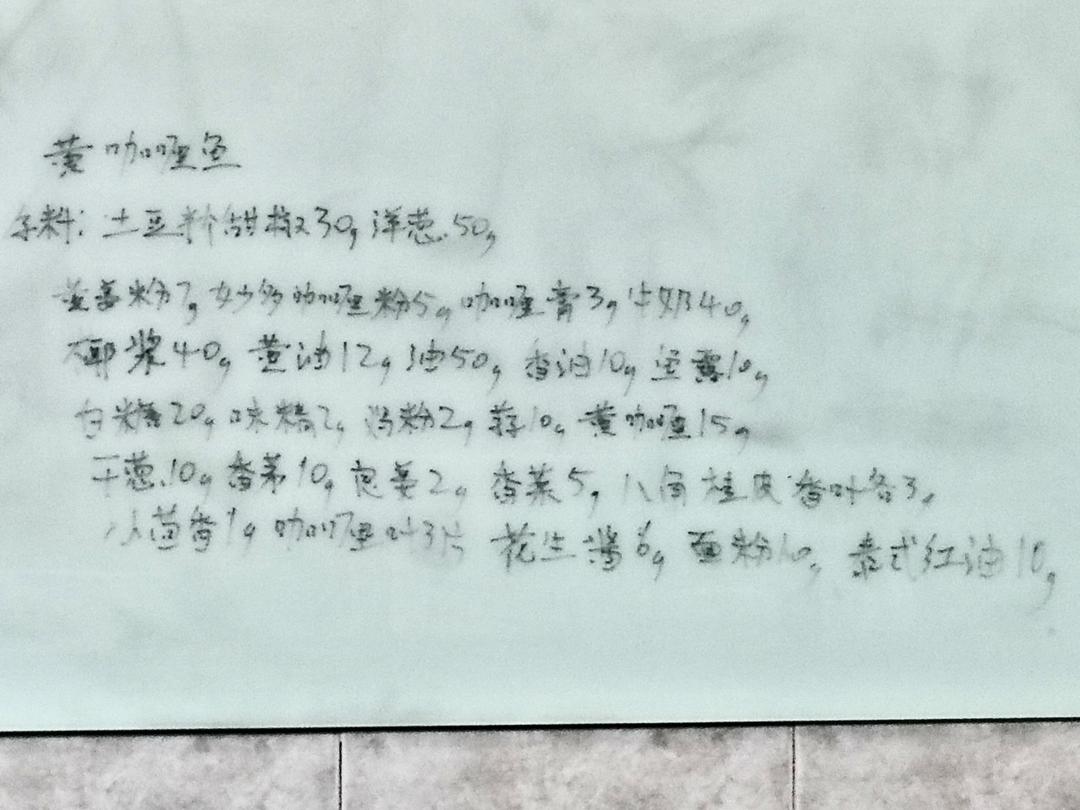 黄咖喱鱼
料: 土豆 甜椒30g 洋葱50g
黄姜粉7g 妙多咖喱粉5g 咖喱膏3g 牛奶40g
椰浆40g 黄油12g 油50g 香油10g 鱼露10g
白糖20g 味精2g 鸡粉2g 蒜10g 黄咖喱15g
干葱10g 香茅10g 姜2g 香菜5g 八角桂皮香叶各3g
小茴香1g 咖喱叶3片 花生酱6g 面粉10g 泰式红油10g